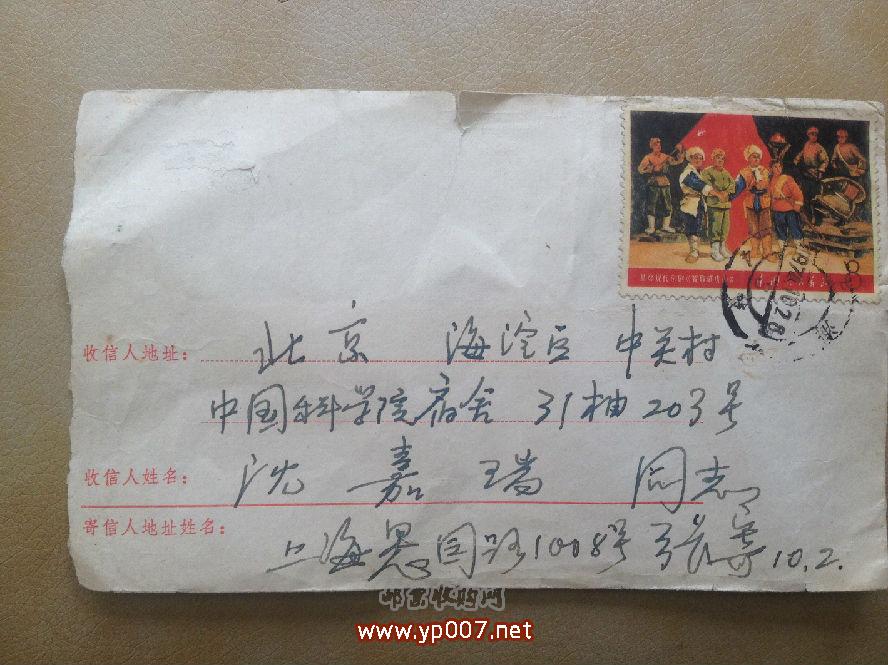 收信人地址：北京 海淀区 中关村
中国科学院宿舍 31楼 203号
收信人姓名：沈嘉瑞 同志
寄信人地址姓名：
上海 路1008号 张寄 10.2.
邮票收购网
www.yp007.net